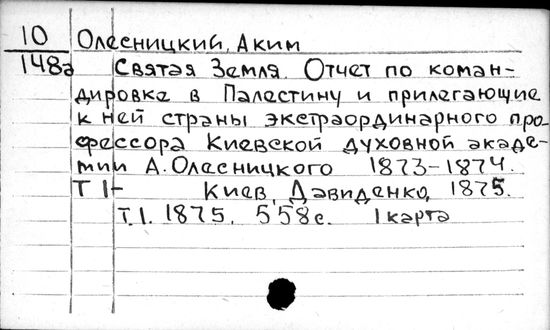 10 Олесницкий, Аким
148а Святая Земля. Отчет по коман-
дировке в Палестину и прилегающие
к ней страны экстраординарного про-
фессора Киевской духовной акаде-
мии А. Олесницкого 1873-1874.
Т 1- Киев, Давиденко, 1875.
Т.1. 1875. 558с. 1 карта